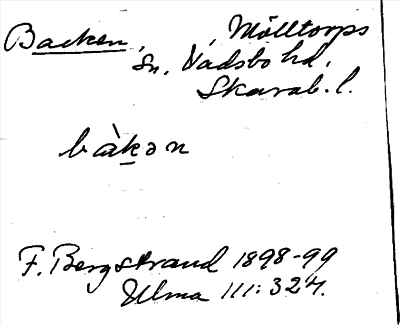 Backen, , Mölltorps
sn, Vadsbo hd,
Skarab. l.
bàkən
F. Bergstrand 1898-99
Ulma 111: 324.